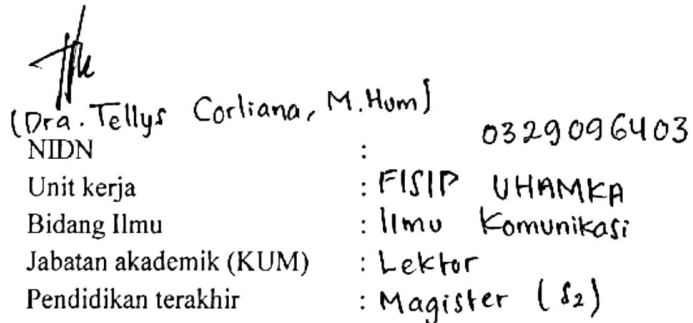 (Dra. Tellys Corliana, M.Hum)
NIDN : 03290964​03
Unit kerja : FISIP UHAMKA
Bidang Ilmu : Ilmu Komunikasi
Jabatan akademik (KUM) : Lektor
Pendidikan terakhir : Magister (S2)